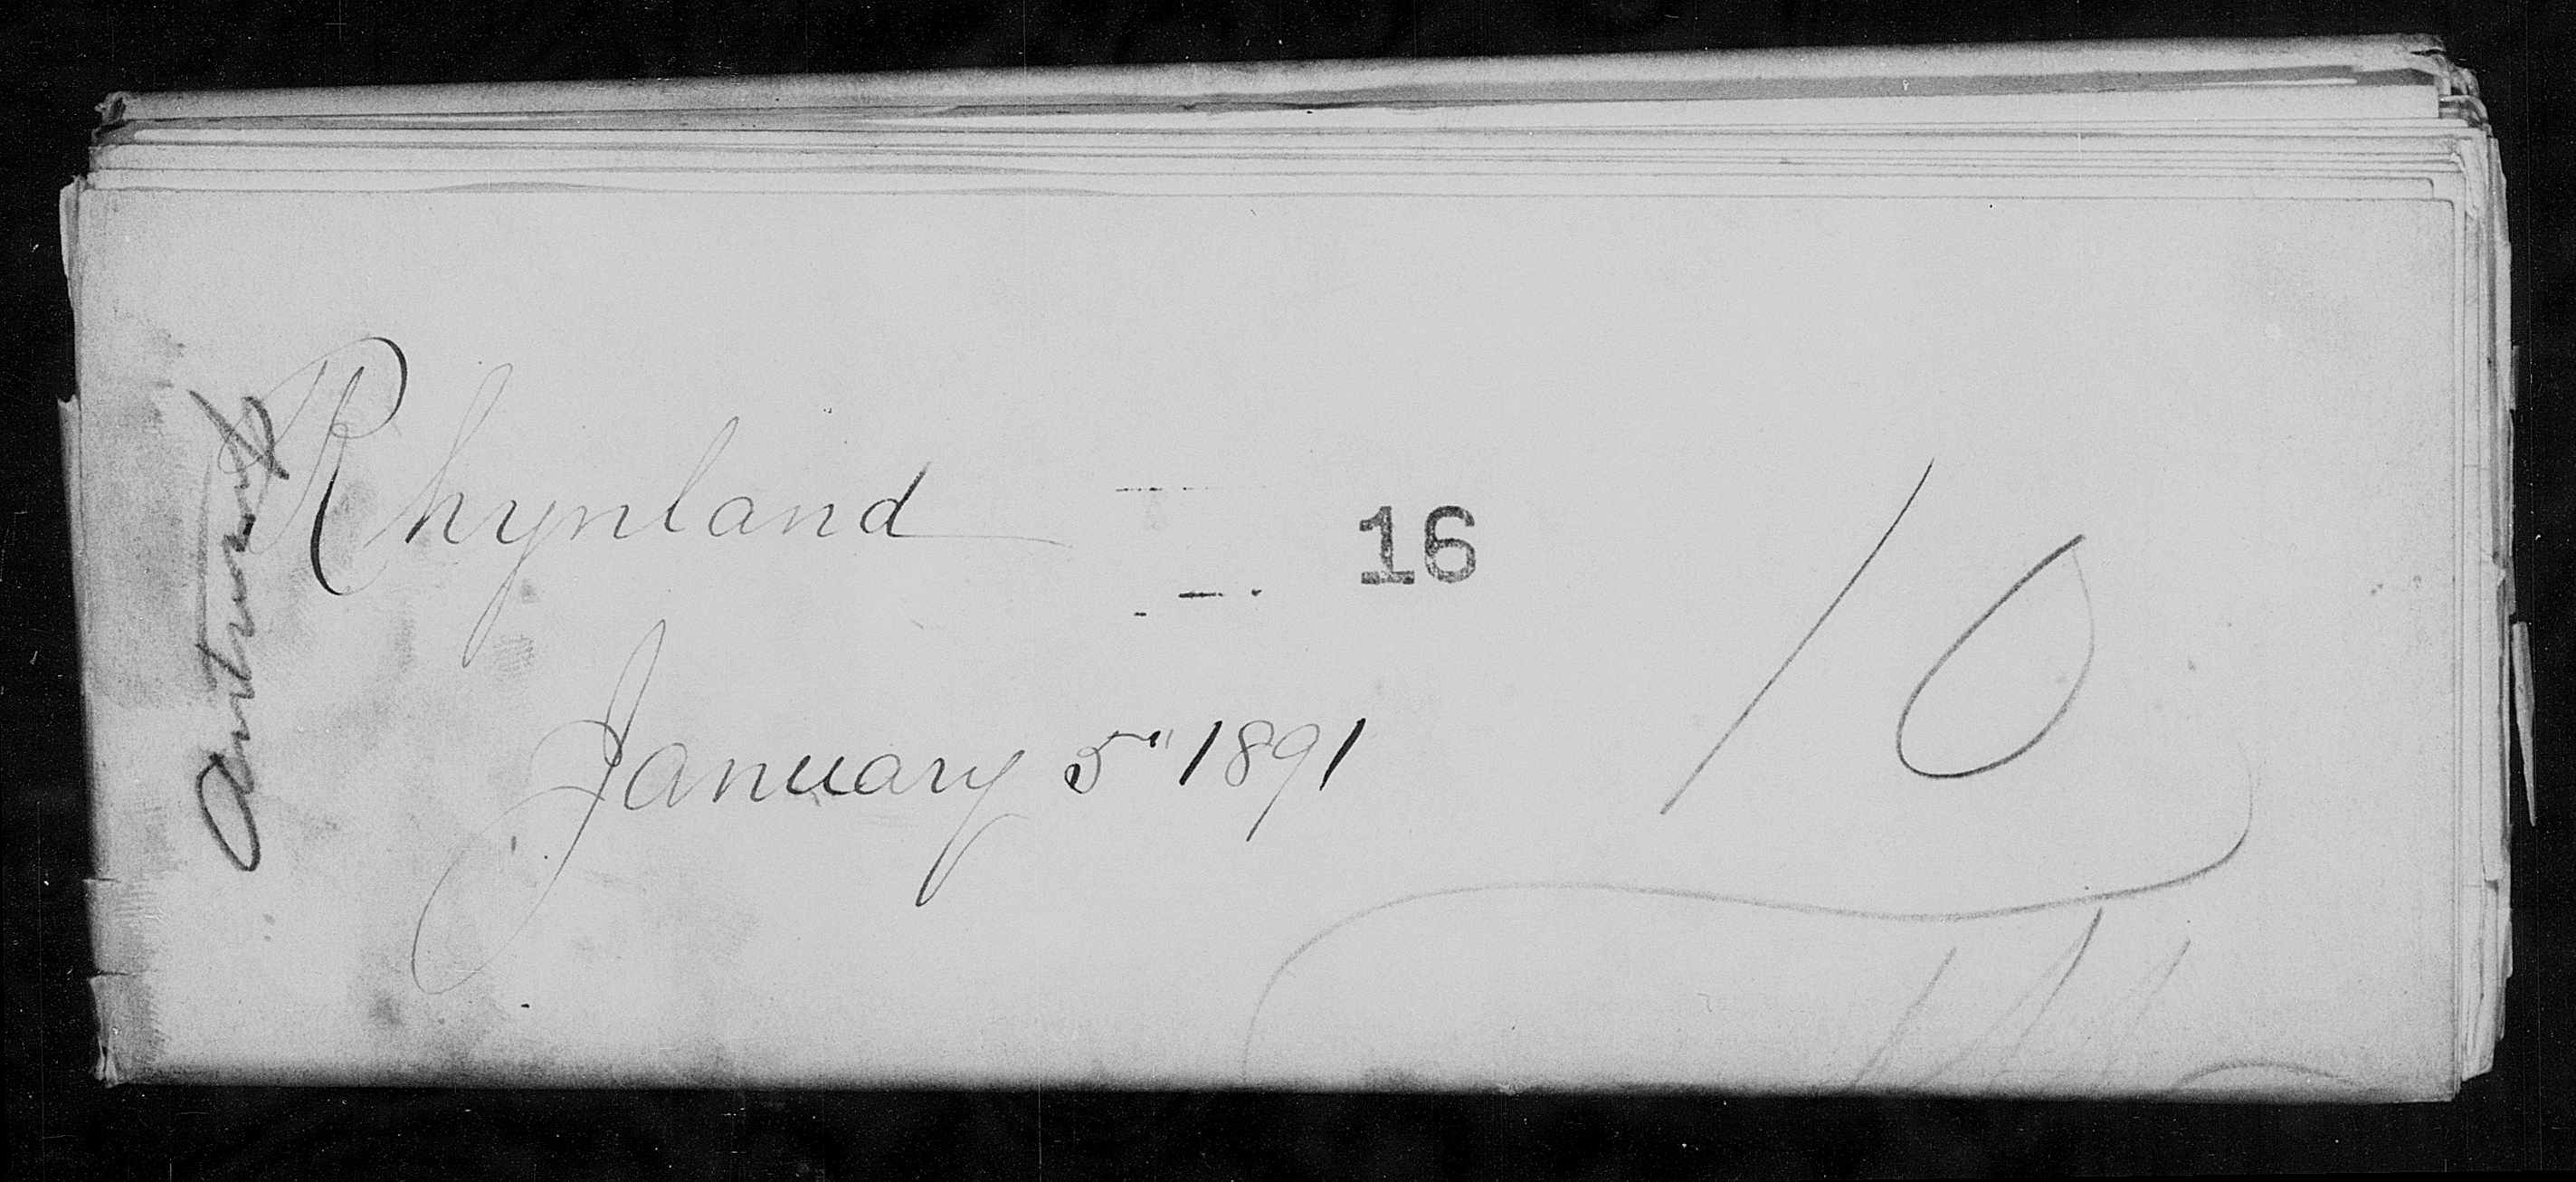 Antwerp
Rhynland
16
10
January 5" 1891